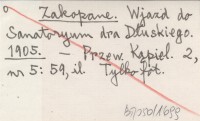 Zakopane. Wjazd do
Sanatoryum dra Dłuskiego.
1905. — Przew. Kąpiel. 2,
nr 5: 59, il. Tylko fot.